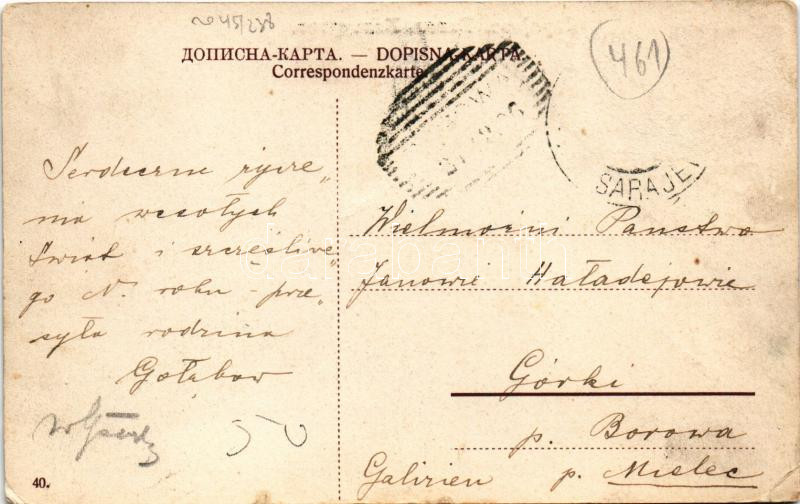 45/286
ДОПИСНА-КАРТА. — DOPISNA-KARTA.
Correspondenzkarte.
461
SARAJE
Serdeczne życze„
nia wesołych
Świąt i szczęśliwe„
go N. roku - prze„
syła rodzina
Gołąbow
Wielmożni Państwo
Janowie Haładejowie
Górki
p. Borowa
Galizien p. Mielec
50
40.